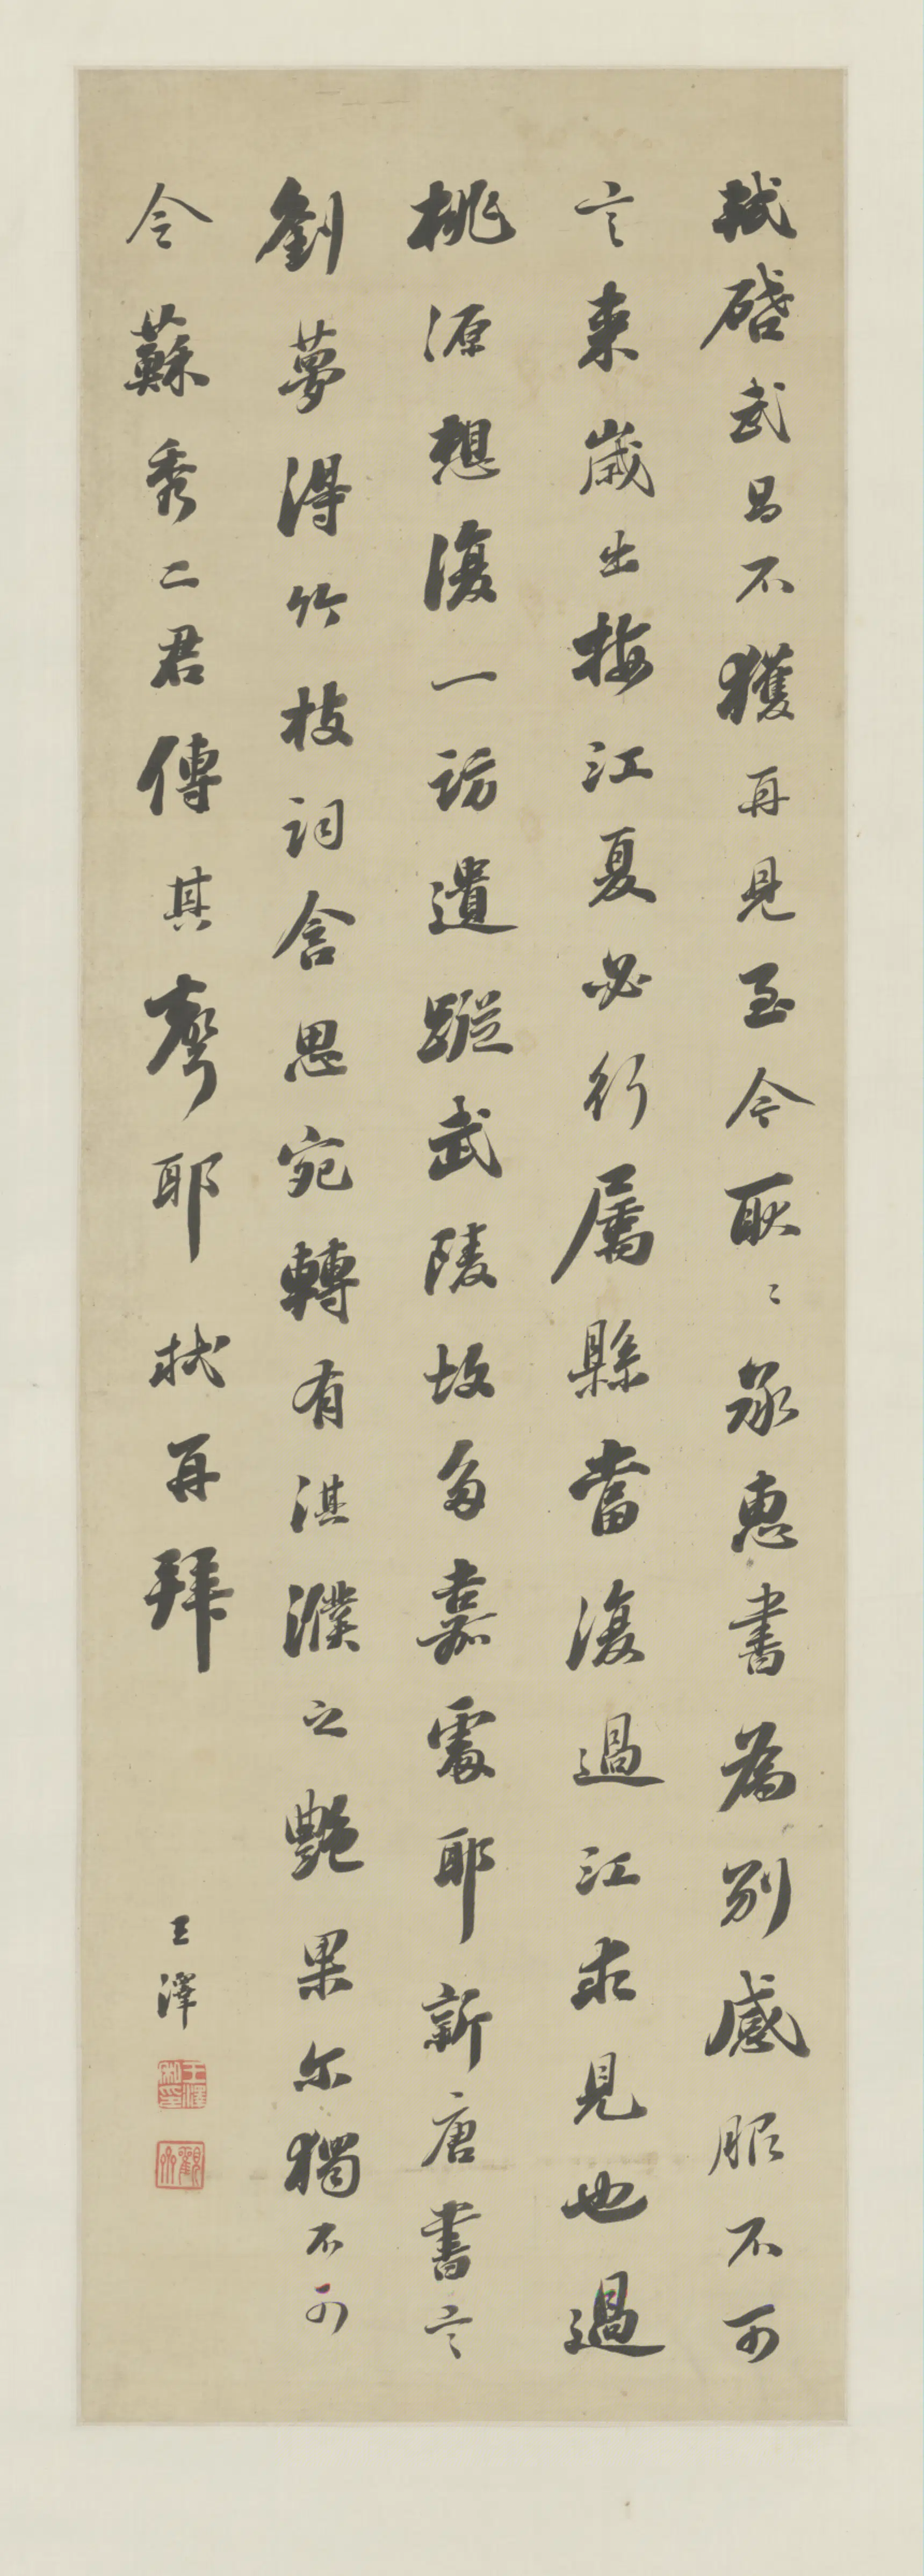 軾啓武昌不獲再見至今耿〻承惠書為別感服不可
言來歲出按江夏必行屬縣當復過江求見也過
桃源想復一訪遺蹤武陵故多嘉處耶新唐書言
劉夢得竹枝詞含思宛轉有淇濮之艷果尔獨不可
令蘇秀二君傳其聲耶 軾再拜
王澤